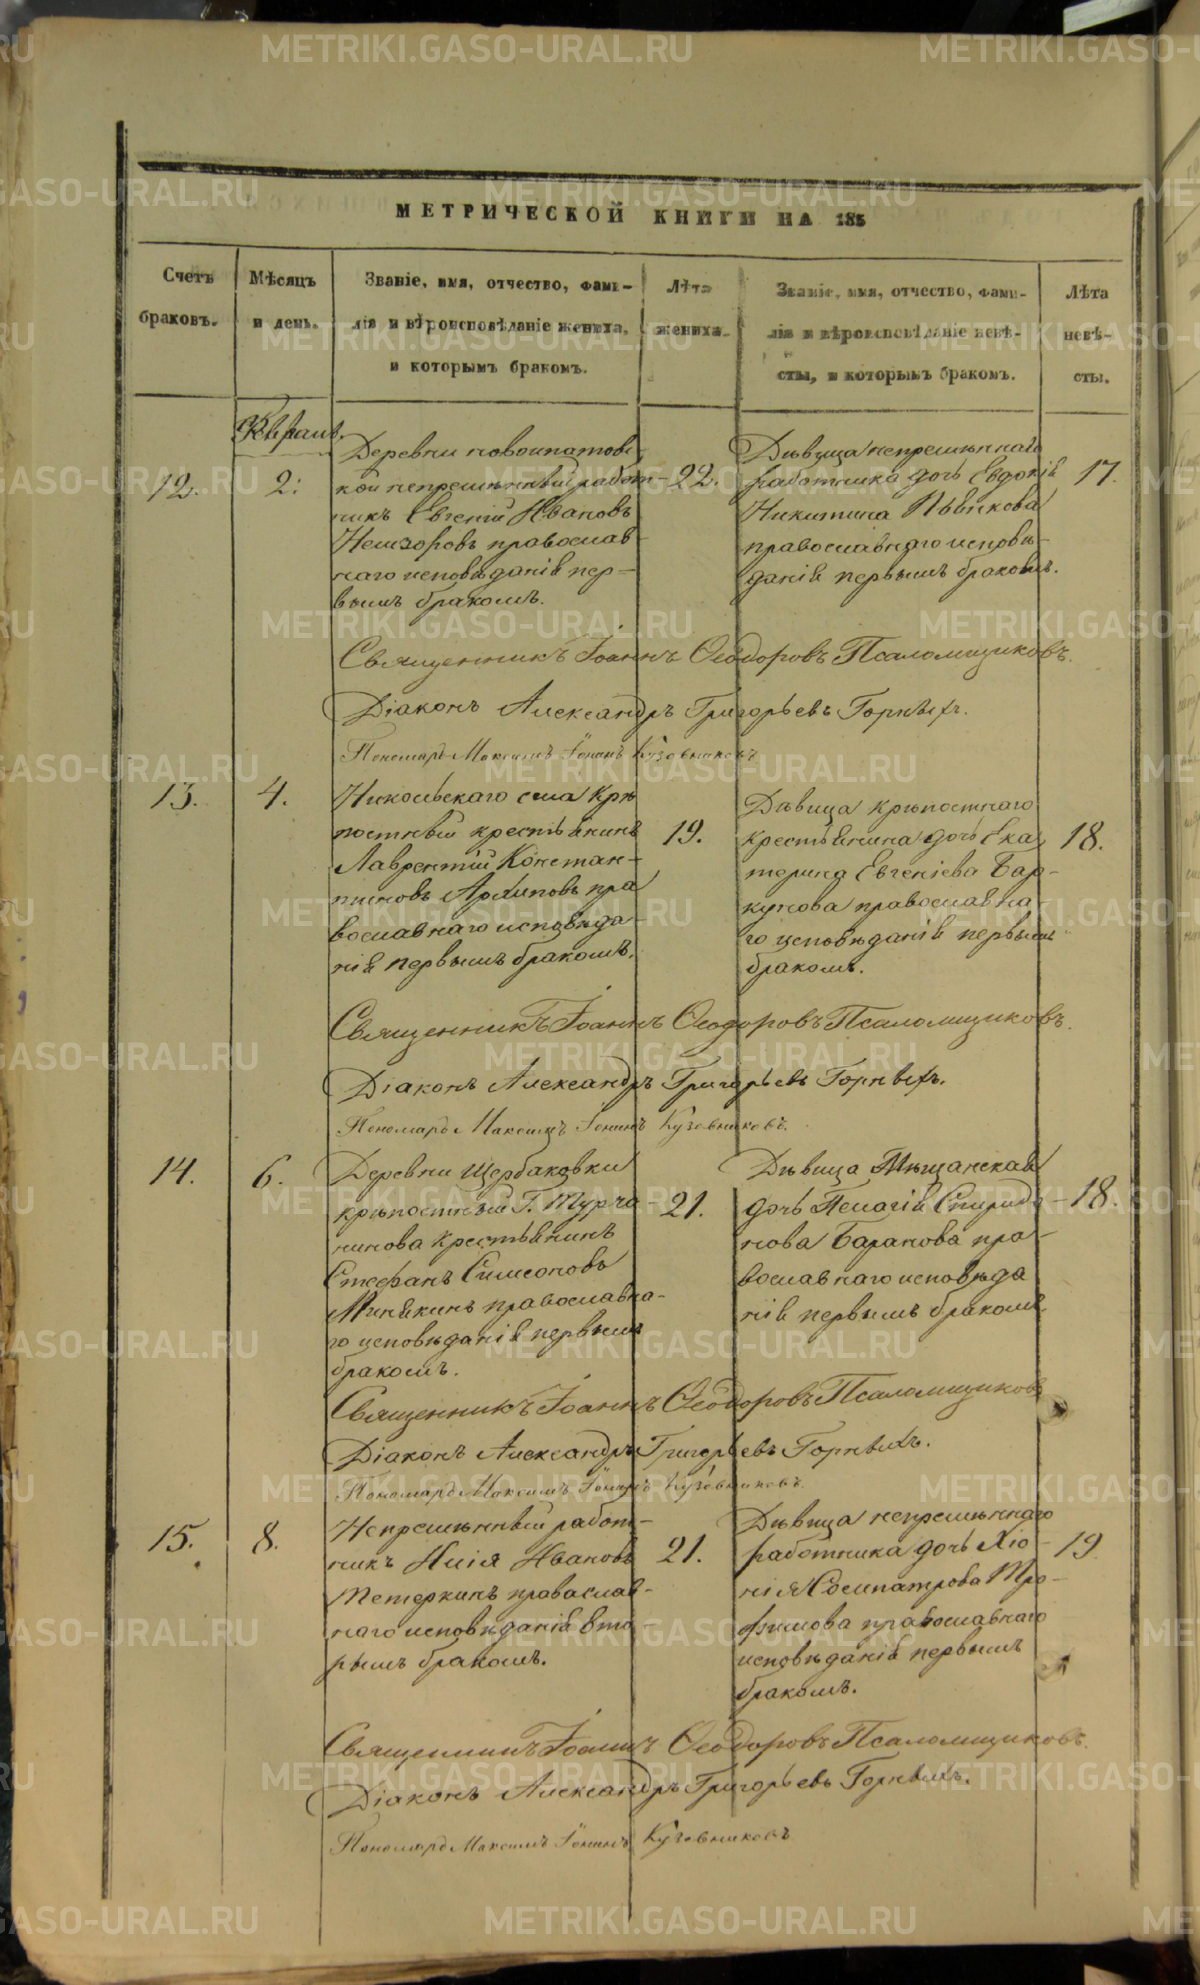 МЕТРИЧЕСКОЙ КНИГИ НА 185
Счетъ браковъ.
Мѣсяцъ и день.
Званіе, имя, отчество, фами-
лія и вѣроисповѣданіе жениха,
и которымъ бракомъ.
Лѣта жениха.
Званіе, имя, отчество, фами-
лія и вѣроисповѣданіе невѣ-
сты, и которымъ бракомъ.
Лѣта невѣ-
сты.
Февраль.
12.
2.
Деревни новоипатовс
кой непремѣнный работ-
никъ Евгеній Ивановъ
православ-
наго исповѣданія пер-
вымъ бракомъ.
22.
Дѣвица непремѣннаго
работника дочь Евдокія
Никитина
православнаго исповѣ-
данія первымъ бракомъ.
17.
Священникъ Іоаннъ Ѳеодоровъ Псаломщиковъ.
Діаконъ Александръ Григорьевъ Горныхъ.
Пономарь Максимъ Іонинъ Кузовниковъ
13.
4.
Никольскаго села Крѣ
постный крестьянинъ
Лаврентій Констан-
тиновъ Архиповъ пра
вославнаго исповѣда-
нія первымъ бракомъ.
19.
Дѣвица крѣпостнаго
крестьянина дочь Ека
терина Евгеніева Бар-
кунова православна-
го исповѣданія первымъ
бракомъ.
18.
Священникъ Іоаннъ Ѳеодоровъ Псаломщиковъ.
Діаконъ Александръ Григорьевъ Горныхъ.
Пономарь Максимъ Іонинъ Кузовниковъ.
14.
6.
Деревни Щербаковки
крѣпостный Г. Турча-
нинова крестьянинъ
Стефанъ Симеоновъ
Минякинъ православна-
го исповѣданія первымъ
бракомъ.
21.
Дѣвица Мѣщанская
дочь Пелагія Спиридо-
нова Баранова пра-
вославнаго исповѣда
нія первымъ бракомъ
18.
Священникъ Іоаннъ Ѳеодоровъ Псаломщиковъ
Діаконъ Александръ Григорьевъ Горныхъ.
Пономарь Максимъ Іонинъ Кузовниковъ.
15.
8.
Непремѣнный работ-
никъ Илія Ивановъ
Тетеркинъ православ-
наго исповѣданія вто-
рымъ бракомъ.
21.
Дѣвица непремѣннаго
работника дочь Хіо-
нія Тро-
фимова православнаго
исповѣданія первымъ
бракомъ.
19
Священникъ Іоаннъ Ѳеодоровъ Псаломщиковъ.
Діаконъ Александръ Григорьевъ Горныхъ.
Пономарь Максимъ Іонинъ Кузовниковъ
METRIKI.GASO-URAL.RU